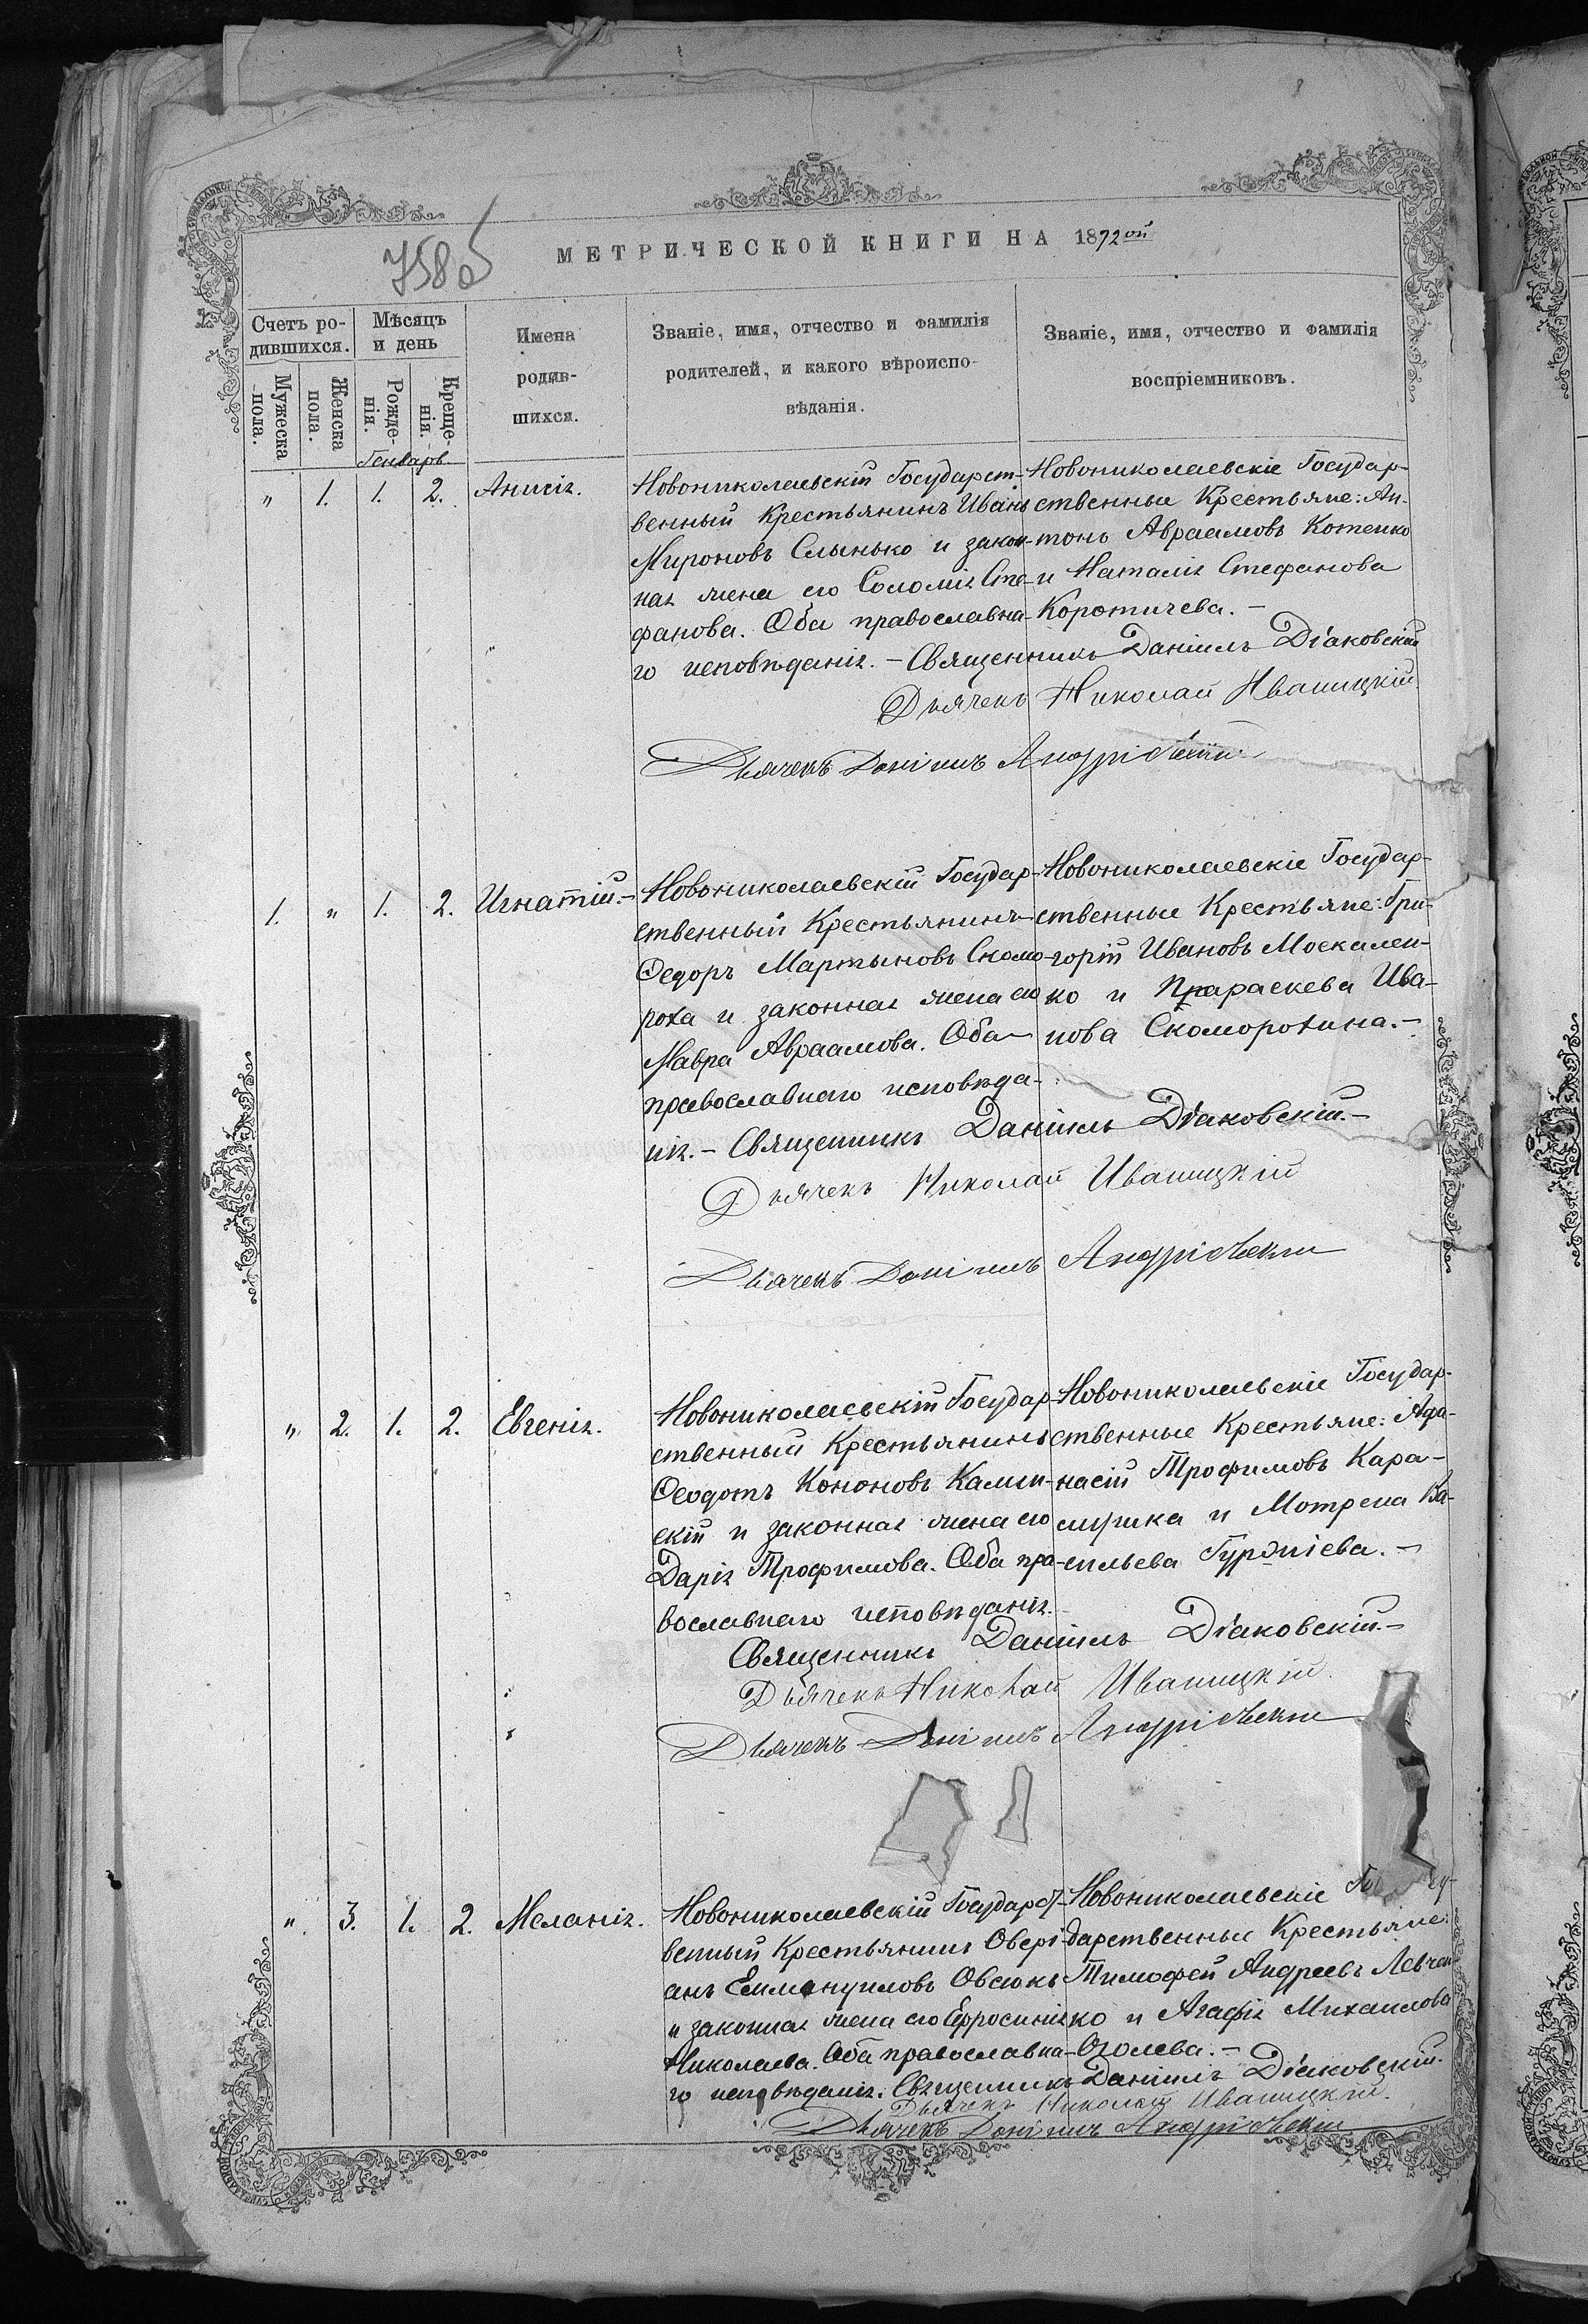 МЕТРИЧЕСКОЙ КНИГИ НА 1872ой
758
Счетъ ро-
дившихся.
Мѣсяцъ
и день
Мужеска
пола.
Женска
пола.
Рожде-
нія.
Креще-
нія.
Имена
родив-
шихся.
Званіе, имя, отчество и фамилія
родителей, и какого вѣроиспо-
вѣданія.
Званіе, имя, отчество и фамилія
воспріемниковъ.
Генварь
" 1. 1. 2. Анисія.
Новониколаевскій Государст-
венный Крестьянинъ Иванъ
Мироновъ Слынько и закон-
ная жена его Соломія Сте-
фанова. Оба православна-
го исповѣданія. –
Новониколаевскіе Государ-
ственные Крестьяне: Ан-
тонъ Авраамовъ Котенко
и Наталія Стефанова
Коротичева. –
Священникъ Даніилъ Діаковскій
Дьячекъ Николай Иваницкій
Дьячекъ Даніилъ Андріевскій
1. " 1. 2. Игнатій. –
Новониколаевскій Государ-
ственный Крестьянинъ
Ѳедоръ Мартыновъ Скомо-
роха и законная жена его
Мавра Авраамова. Оба
православнаго исповѣда-
нія. –
Новониколаевскіе Государ-
ственные Крестьяне: Гри-
горій Ивановъ Москален-
ко и Параскева Ива-
нова Скоморохина. –
Священникъ Даніилъ Діаковскій. –
Дьячекъ Николай Иваницкій
Дьячекъ Даніилъ Андріевскій
" 2. 1. 2. Евгенія.
Новониколаевскій Государ-
ственный Крестьянинъ
Ѳеодотъ Кононовъ Камин-
скій и законная жена его
Дарія Трофимова. Оба пра-
вославнаго исповѣданія. –
Новониколаевскіе Государ-
ственные Крестьяне: Афа-
насій Трофимовъ Кара-
и Мотрена Ва-
сильева
Священникъ Даніилъ Діаковскій. –
Дьячекъ Николай Иваницкій
Дьячекъ Даніилъ Андріевскій
" 3. 1. 2. Меланія.
Новониколаевскій Государст-
венный Крестьянинъ Овері-
анъ Еммануиловъ Овсюкъ
и законная жена его Ефросинія
Николаева. Оба православна-
го исповѣданія.
Новониколаевскіе
дарственные Крестьяне:
Тимофей Андреевъ Левчен-
ко и Агафія Михаилова
Оголева. –
Священникъ Даніилъ Діаковскій.
Дьячекъ Николай Иваницкій.
Дьячекъ Даніилъ Андріевскій